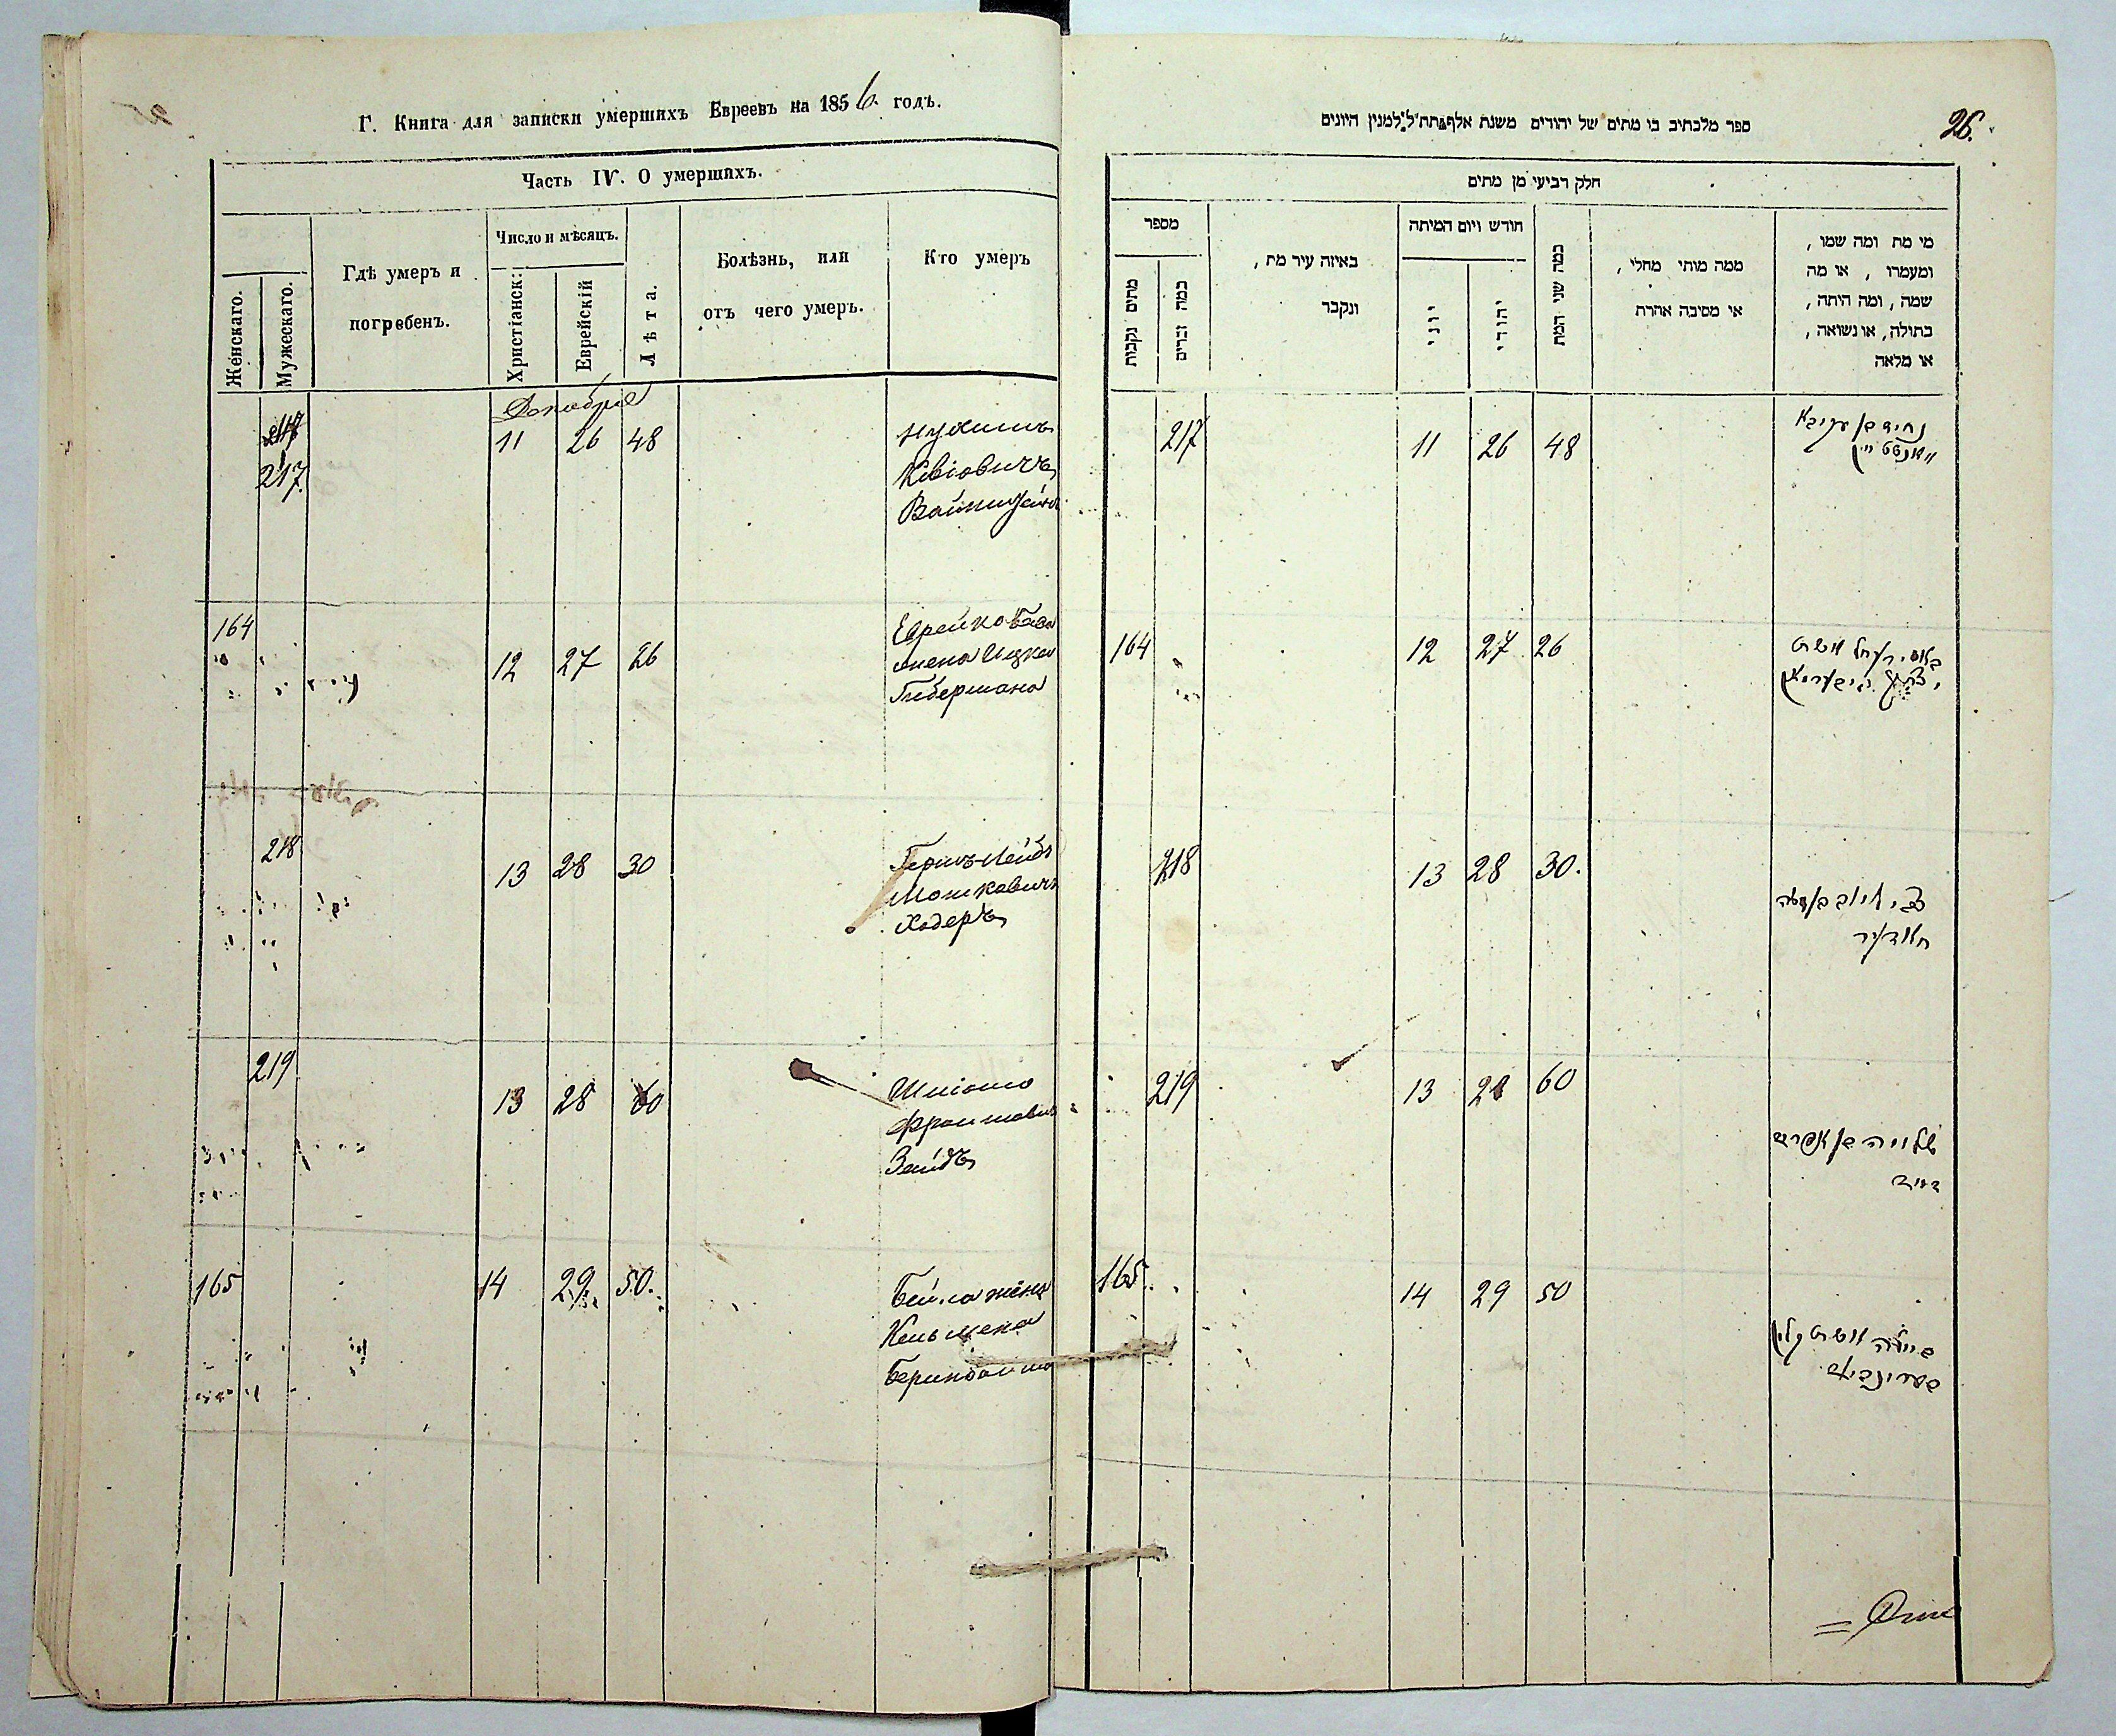 Г. Книга для записки умершихъ Евреевъ на 1856. годъ.
Часть IV. О умершихъ.
Женскаго.
Мужескаго.
Гдѣ умеръ и
погребенъ.
Число и мѣсяцъ.
Христіанск:
Еврейскій
Лѣта.
Болѣзнь, или
отъ чего умеръ.
Кто умеръ
Декабря
217.
11 26 48
Нухимъ
Кивіовичъ
Вайнштейнъ
164
12 27 26
Еврейка Бася
жена Ицка
Гибермана
218
13 28 30
Гершъ-Лейбъ
Мошковичъ
Ходеръ
219
13 28 60
Шліома
Зейдъ
165
14 29. 50.
Бейла жена
Кельмена
26.
ספר מלכתיב בו מתים של יהודים משנת אלף תת"ל למנין היונים
חלק רביעי מן מתים
מספר
מתים נקבות
כמה זכרים
באיזה עיר מת,
ונקבר
חודש ויום המיתה
יוני
יהודי
כמה שני המת
ממה מותי מחלי,
אי מסיבה אהרת
מי מת ומה שמו,
ומעמרו, או מה
שמה, ומה היתה,
בתולה, או נשואה,
או מלאה
217
11 26 48
164
12 27 26
218
13 28 30.
צבי לייב בן משה
חאדער
219
13 28 60
זייד
165.
14 29 50